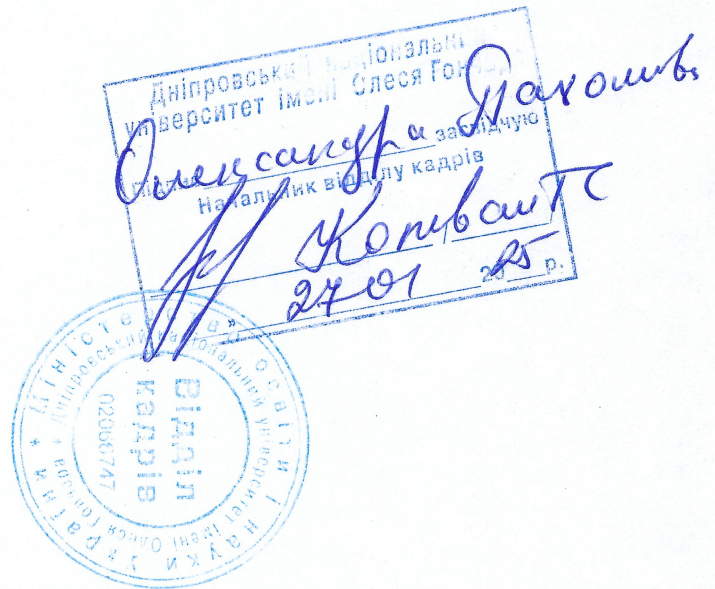 Дніпровський національний
університет імені Олеся Гончара
Підпис Олександра Пахомова засвідчую
Начальник відділу кадрів
27 01 2025 р.
Міністерство освіти і науки України
Дніпровський національний університет імені Олеся Гончара
Відділ
кадрів
02066747